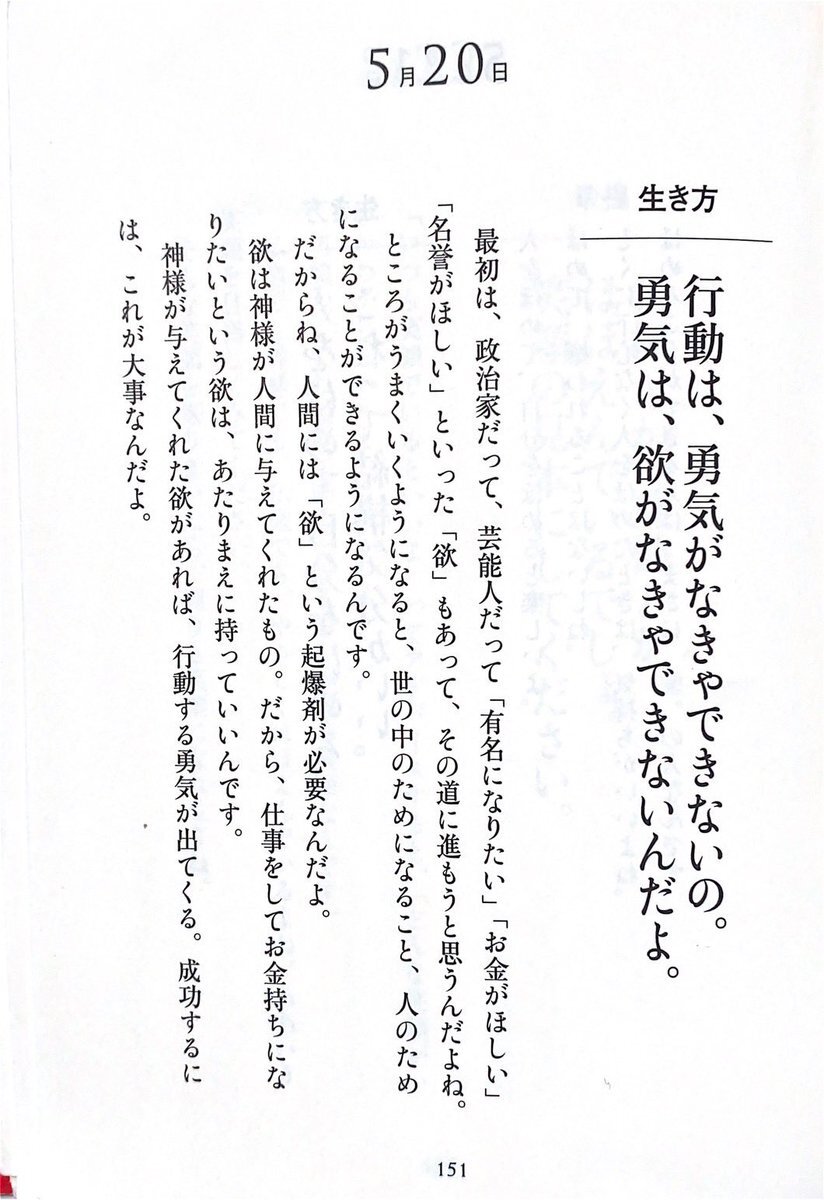 5月20日
生き方
行動は、勇気がなきゃできないの。
勇気は、欲がなきゃできないんだよ。
最初は、政治家だって、芸能人だって「有名になりたい」「お金がほしい」
「名誉がほしい」といった「欲」もあって、その道に進もうと思うんだよね。
ところがうまくいくようになると、世の中のためになること、人のため
になることができるようになるんです。
だからね、人間には「欲」という起爆剤が必要なんだよ。
欲は神様が人間に与えてくれたもの。だから、仕事をしてお金持ちにな
りたいという欲は、あたりまえに持っていいんです。
神様が与えてくれた欲があれば、行動する勇気が出てくる。成功するに
は、これが大事なんだよ。
151